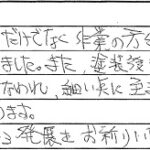 だけでなく作業の方も
ました。また、塗装後
なわれ、細い点に至
ります。
る発展をお祈りいた